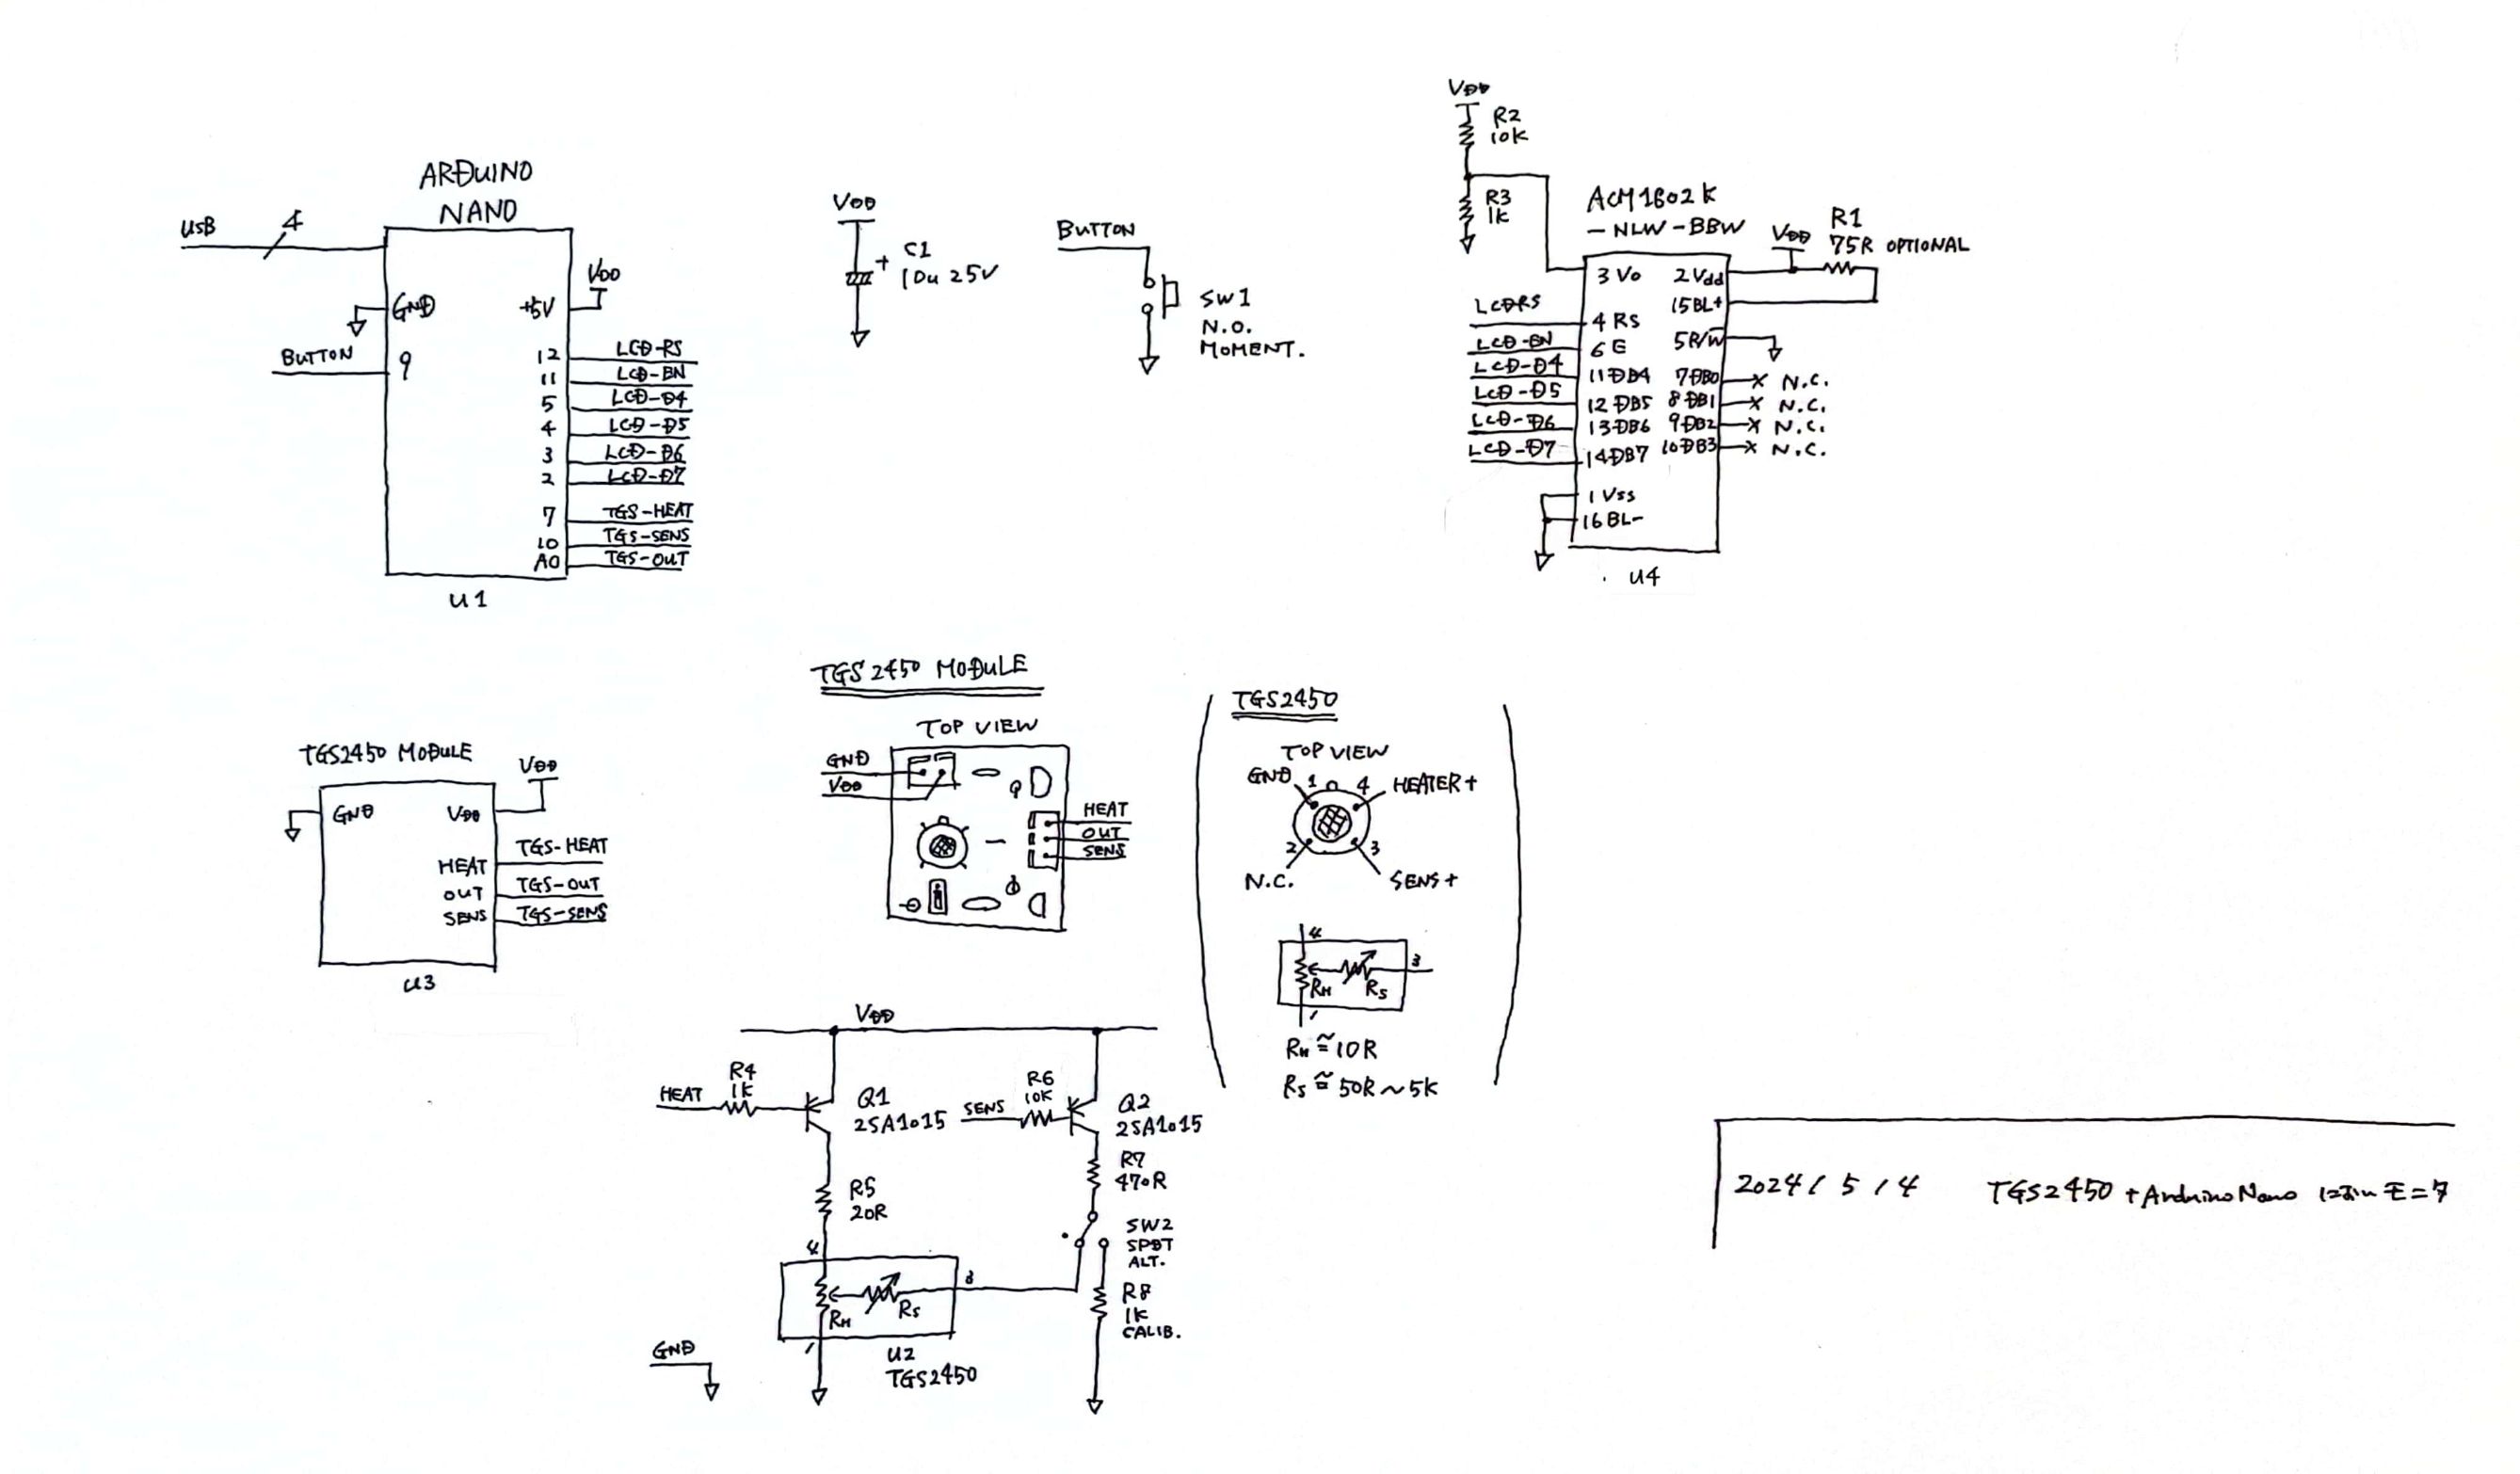 ARDUINO
NANO
USB
4
GND
+5V
VDD
BUTTON
9
12
LCD-RS
11
LCD-EN
5
LCD-D4
4
LCD-D5
3
LCD-D6
2
LCD-D7
7
TGS-HEAT
10
TGS-SENS
A0
TGS-OUT
U1
VDD
+
C1
10u 25V
BUTTON
SW1
N.O.
MOMENT.
VDD
R2
10K
R3
1K
ACM1602K
-NLW-BBW
VDD
R1
75R OPTIONAL
3 Vo
2 Vdd
15 BL+
LCDRS
4 RS
5 R/W
LCD-EN
6 E
LCD-D4
11 DB4
7 DB0
N.C.
LCD-D5
12 DB5
8 DB1
N.C.
LCD-D6
13 DB6
9 DB2
N.C.
LCD-D7
14 DB7
10 DB3
N.C.
1 Vss
16 BL-
U4
TGS2450 MODULE
GND
VDD
VDD
HEAT
TGS-HEAT
OUT
TGS-OUT
SENS
TGS-SENS
U3
TGS2450 MODULE
TOP VIEW
GND
VDD
HEAT
OUT
SENS
TGS2450
TOP VIEW
GND
1
4
HEATER+
2
3
N.C.
SENS+
4
3
RH
RS
1
RH ≅ 10R
RS ≅ 50R~5K
VDD
HEAT
R4
1K
Q1
2SA1015
SENS
R6
10K
Q2
2SA1015
R5
20R
R7
470R
SW2
SPDT
ALT.
4
3
RH
RS
1
R8
1K
CALIB.
U2
TGS2450
GND
2024/5/4 TGS2450+ArduinoNano においモニタ